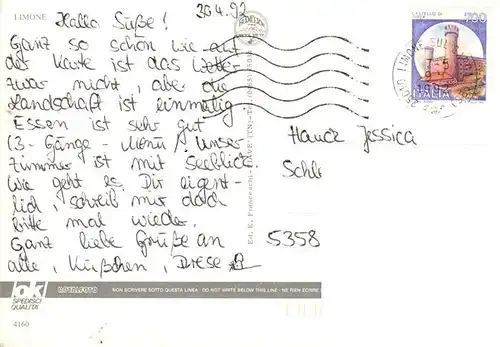 LIMONE
30.4.92
Hallo Süße!
Ganz so schön wie auf
der Karte ist das Wetter
zwar nicht, aber die
Landschaft ist einmalig
Essen ist sehr gut
(3-Gänge-Menü) Unser
Zimmer ist mit Seeblick.
Wie geht es Dir eigent-
lich, schreib mir doch
bitte mal wieder.
Ganz liebe Grüße an
alle, Küßchen,
700
ITALIA
Jessica
5358
ok
SPEDISCI
QUALITÀ
ROTALFOTO
NON SCRIVERE SOTTO QUESTA LINEA - DO NOT WRITE BELOW THIS LINE - NE RIEN ÉCRIRE
4160